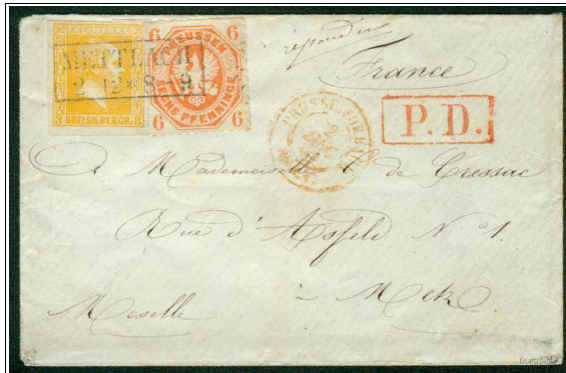 FREIMARKE
3 DREISILBERGR. 3
PREUSSEN
6 6
SECHS PFENNINGE
6 6
METTLACH
2 12 * 8 - 9
répondu
France
2
P.D.
A Mademoiselle C. de Cressac
Rue d'Asfeld N° 1.
à Metz
Moselle